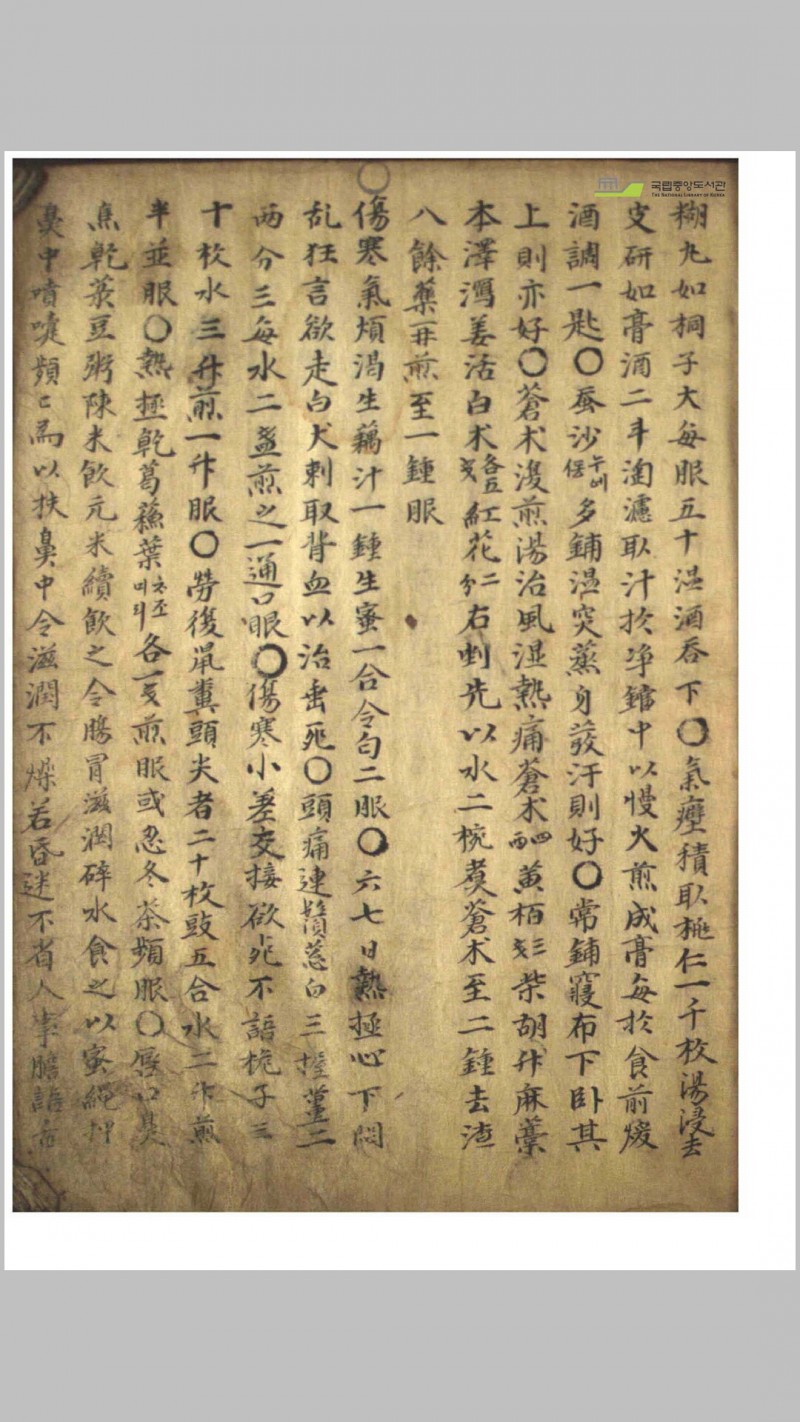 국립중앙도서관
THE NATIONAL LIBRARY OF KOREA
糊丸如桐子大每服五十温酒吞下〇氣痙積取桃仁一千枚湯浸去
皮研如膏酒二斗淘濾取汁扵净鐺中以慢火煎成膏每扵食前煖
酒調一匙〇蚕沙누에多鋪温突蒸身發汗則好〇常鋪寢布下卧其
上則亦好〇蒼术濃煎湯治風湿熱痛蒼术四両黄栢三戔柴胡升麻藁
本澤瀉羌活白术各五戔紅花二分右剉先以水二椀煑蒼术至二鍾去渣
八餘藥再煎至一鍾服
〇
傷寒氣煩渇生藕汁一鍾生蜜一合令匀二服〇六七日熱極心下悶
乱狂言欲走白犬刺取背血以治垂死〇頭痛連鬚葱白三握薑二
两分三每水二盏煎之一通口服〇傷寒小差交接欲死不語栀子三
十枚水三升煎一升服〇勞復鼠糞頭尖者二十枚豉五合水二升煎
半並服〇熱極乾葛蘓葉各一戔煎服或忍冬茶頻服〇唇口臭
焦乾菉豆粥陳米飲元米續飲之令膓胃滋潤碎水食之以蜜縄
鼻中噴嚏頻〻為以扶鼻中令滋潤不燥若昏迷不省人事膽